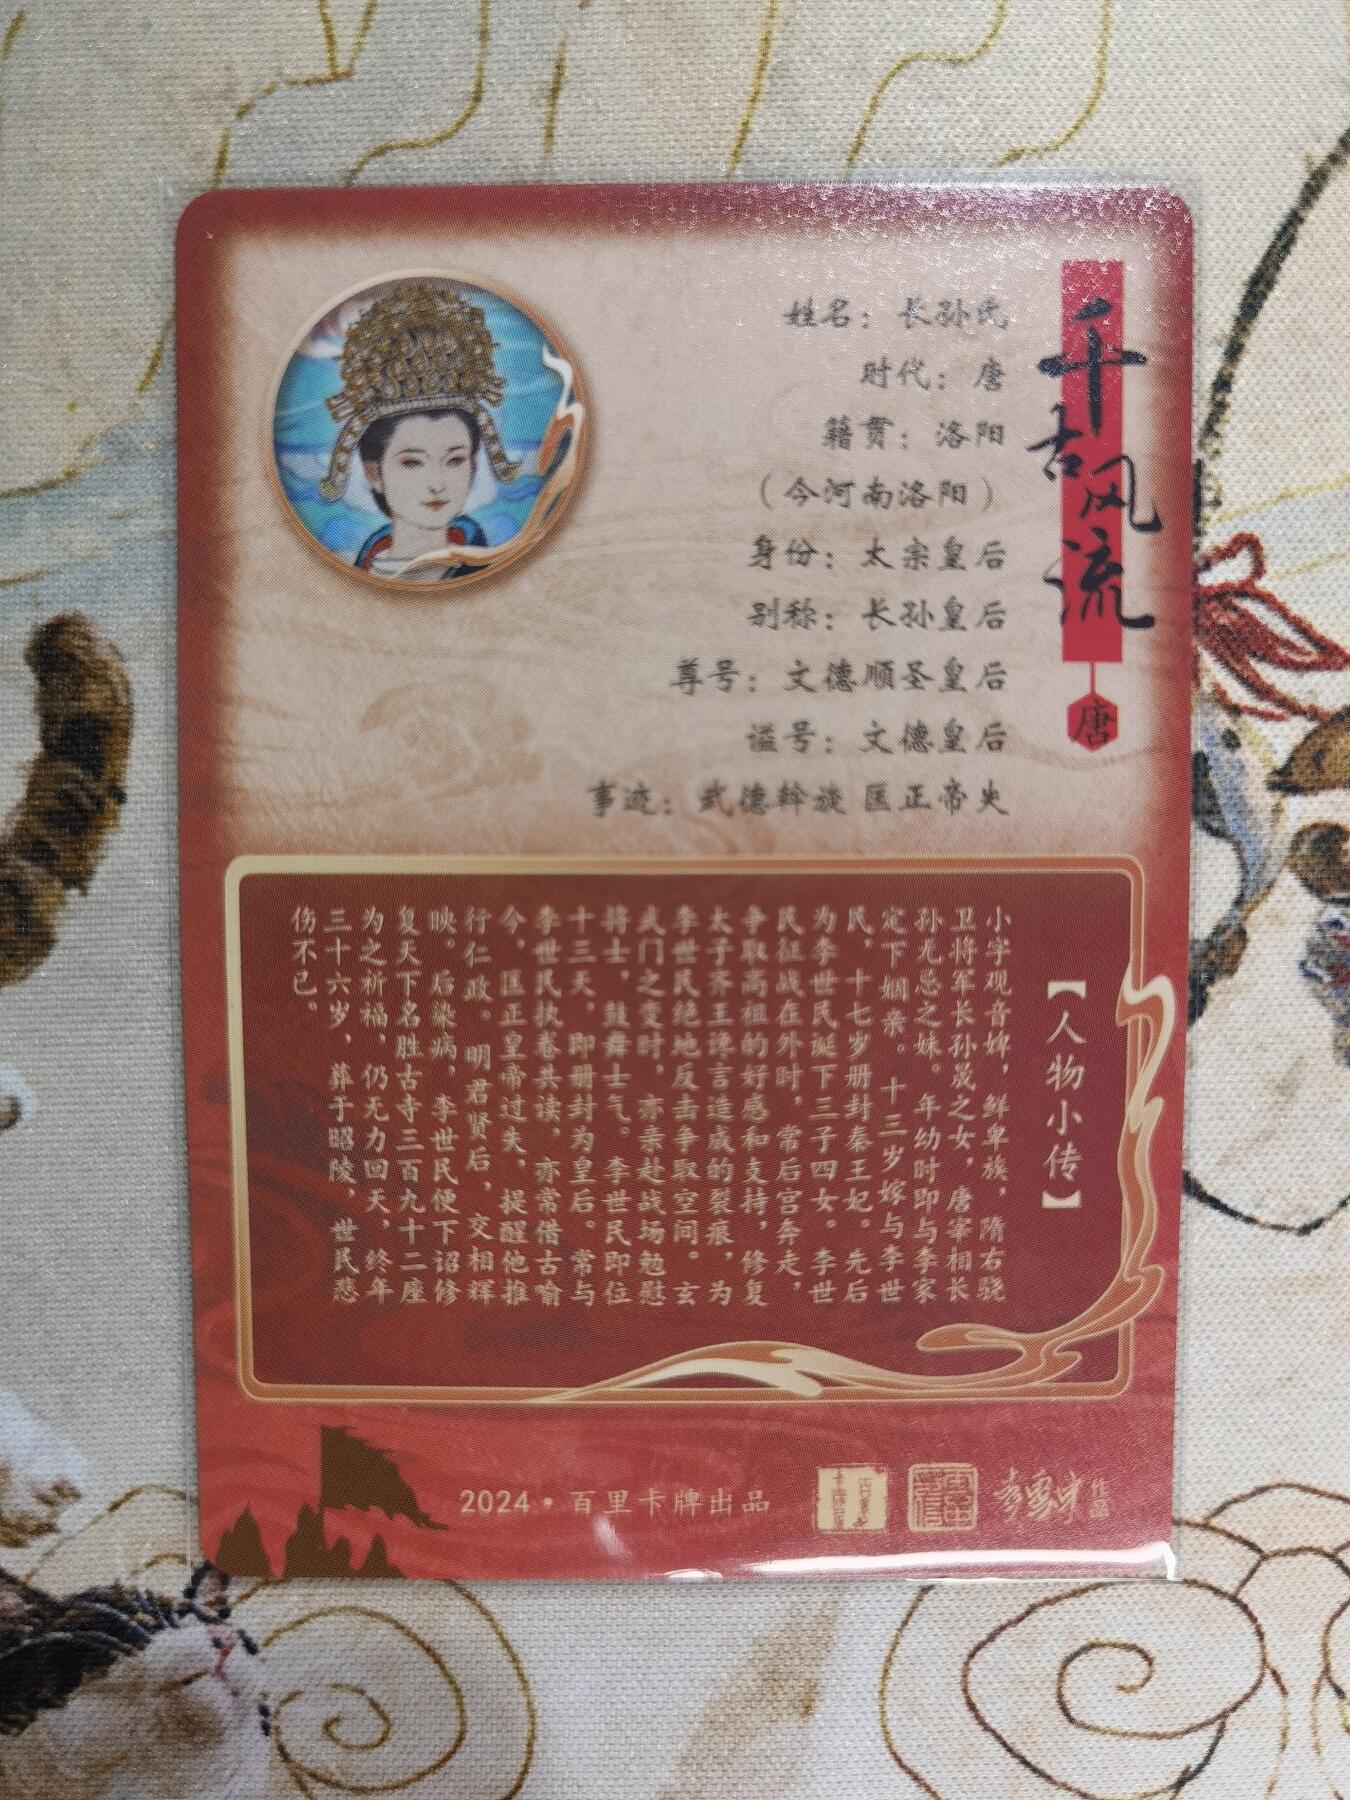 千古风流
唐
姓名：长孙氏
时代：唐
籍贯：洛阳
（今河南洛阳）
身份：太宗皇后
别称：长孙皇后
尊号：文德顺圣皇后
谥号：文德皇后
事迹：武德斡旋 匡正帝失
【人物小传】
小字观音婢，鲜卑族，隋右骁
卫将军长孙晟之女，唐宰相长
孙无忌之妹。年幼时即与李家
定下姻亲。十三岁嫁与李世
民，十七岁册封秦王妃。先后
为李世民诞下三子四女。李世
民征战在外时，常后宫奔走，
争取高祖的好感和支持，修复
太子齐王谗言造成的裂痕，为
李世民绝地反击争取空间。玄
武门之变时，亦亲赴战场勉慰
将士，鼓舞士气。李世民即位
十三天，即册封为皇后。常与
李世民执卷共读，亦常借古喻
今，匡正皇帝过失，提醒他推
行仁政。明君贤后，交相辉
映。后染病，李世民便下诏修
复天下名胜古寺三百九十二座
为之祈福，仍无力回天，终年
三十六岁，葬于昭陵，世民悲
伤不已。
2024·百里卡牌出品
作品